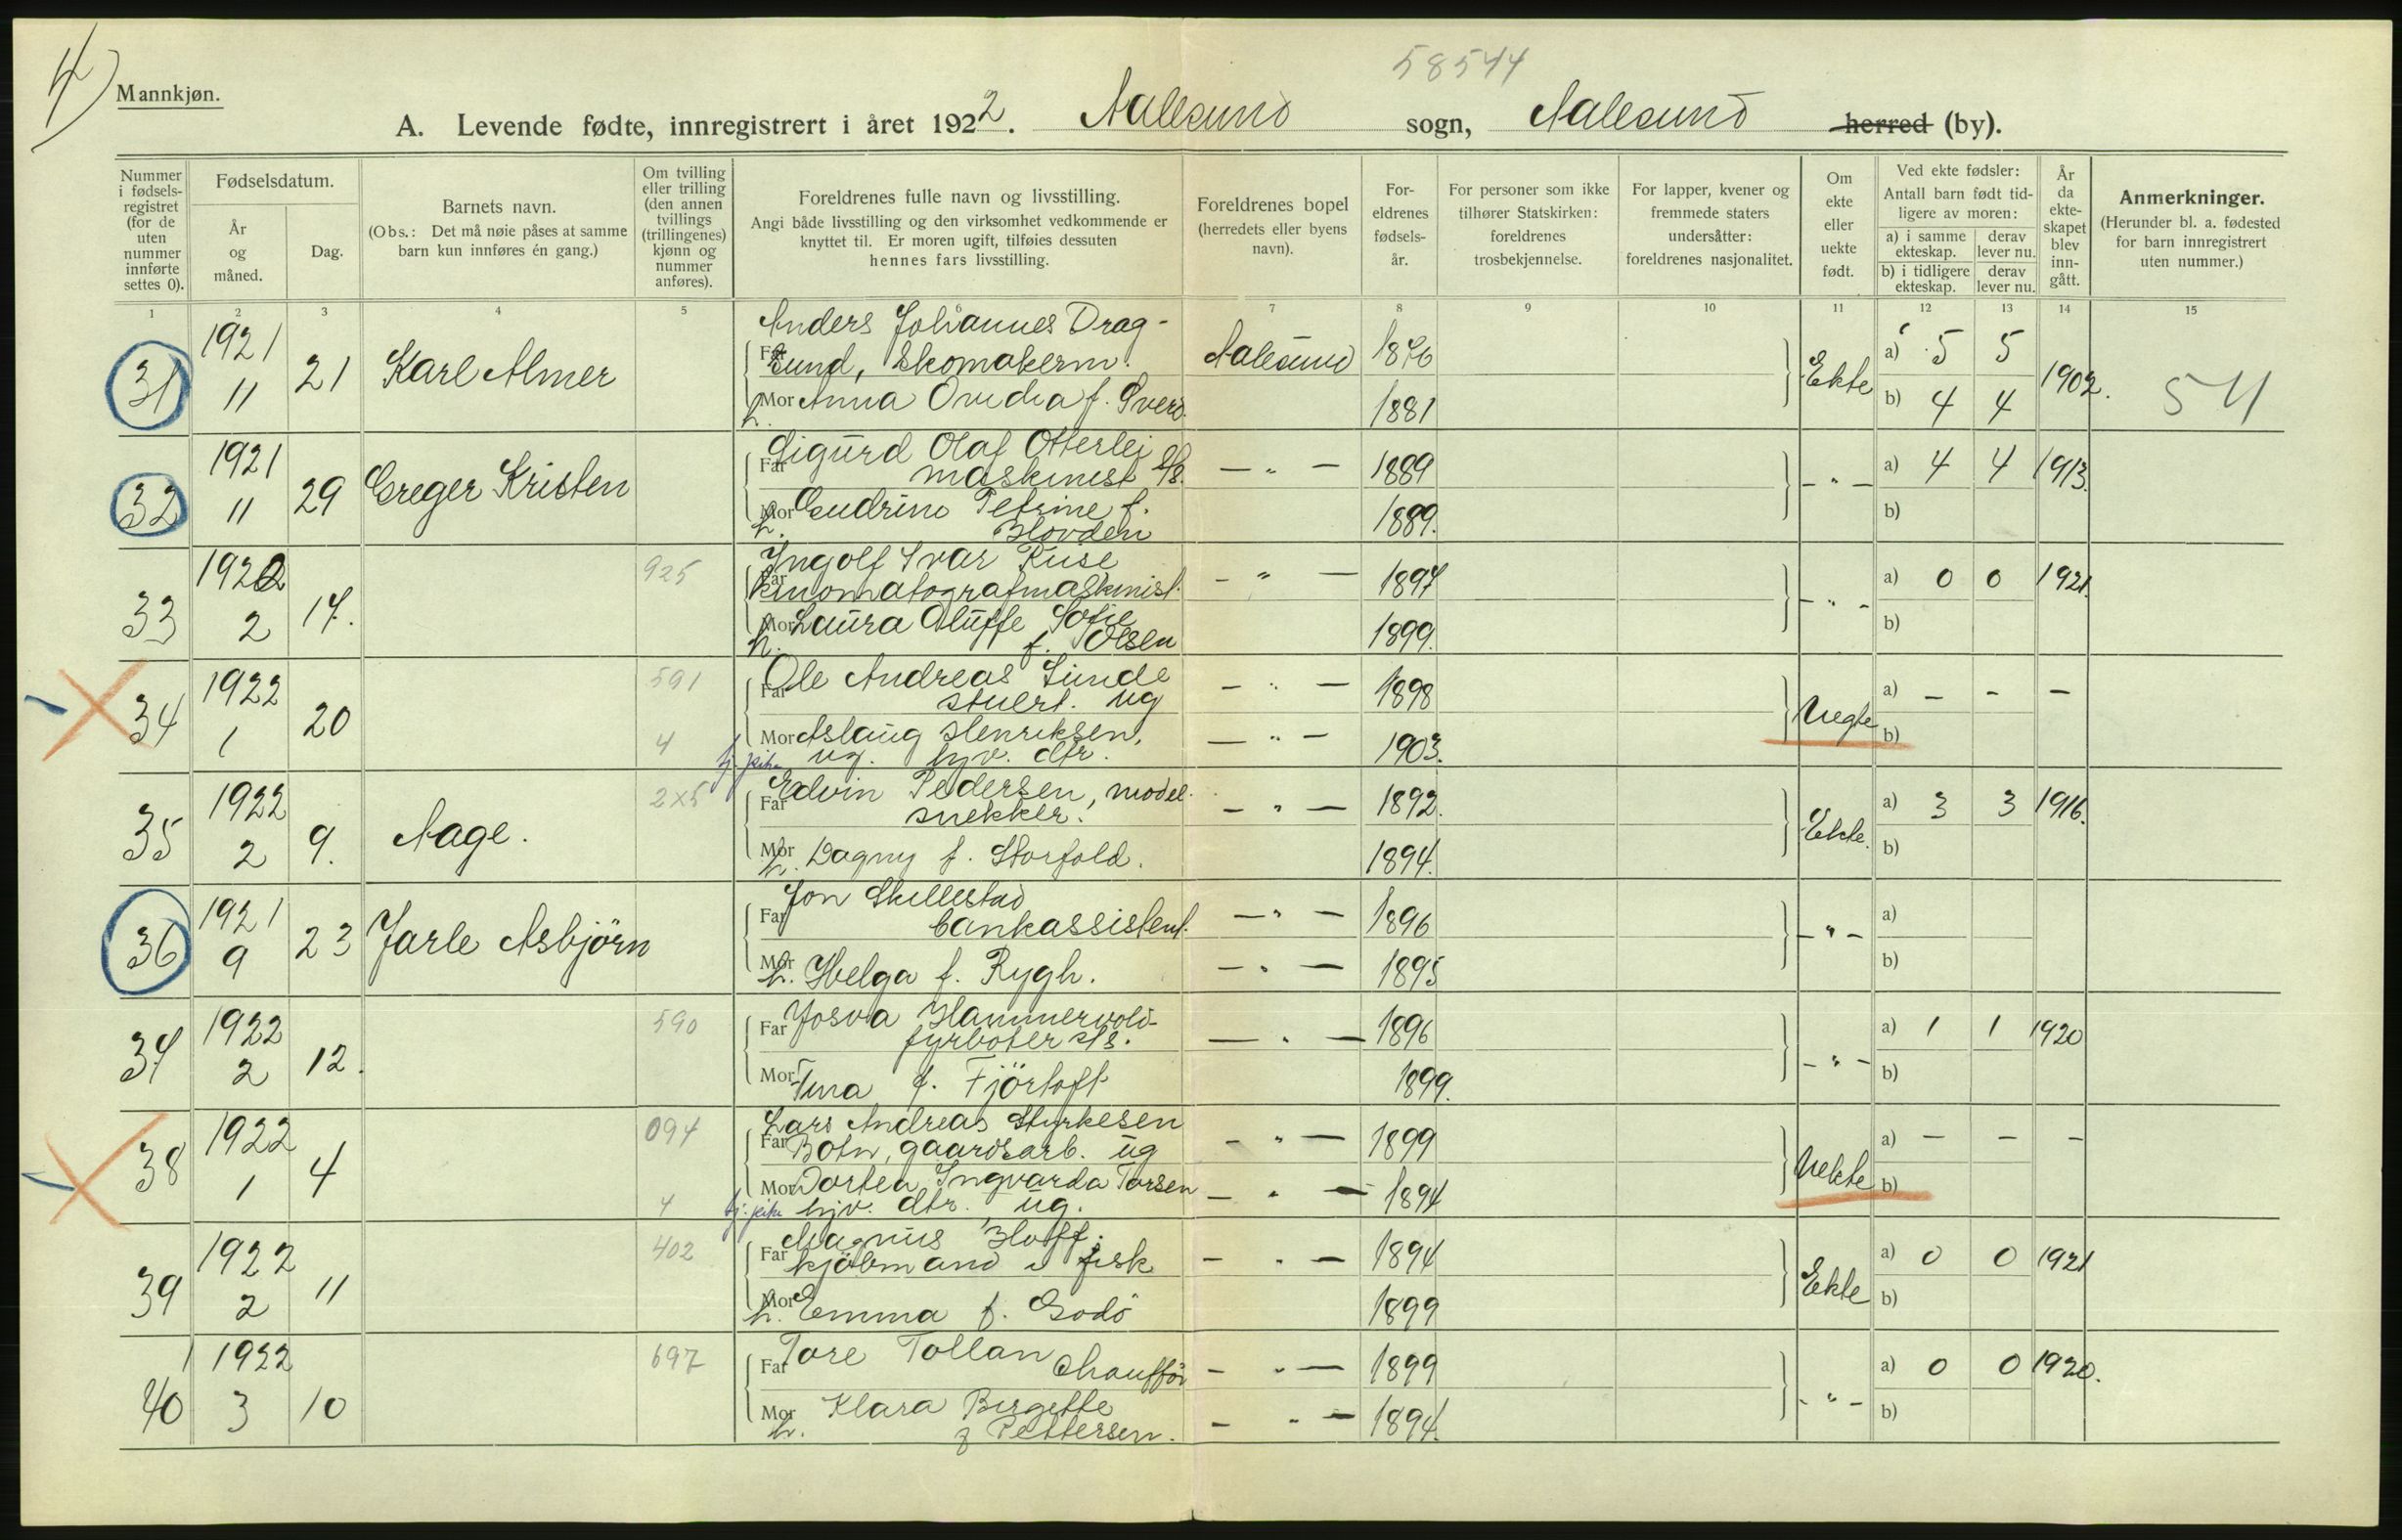 4)
58544
Mannkjøn.
A. Levende fødte, innregistrert i året 1922. Aalesund sogn, Aalesund herred (by).
Nummer i fødsels-registret (for de uten nummer innførte settes 0).
Fødselsdatum.
År og måned.
Dag.
Barnets navn.
(Obs.: Det må nøie påses at samme barn kun innføres én gang.)
Om tvilling eller trilling (den annen tvillings (trillingenes) kjønn og nummer anføres).
Foreldrenes fulle navn og livsstilling.
Angi både livsstilling og den virksomhet vedkommende er knyttet til. Er moren ugift, tilføies dessuten hennes fars livsstilling.
Foreldrenes bopel (herredets eller byens navn).
For-eldrenes fødsels-år.
For personer som ikke tilhører Statskirken: foreldrenes trosbekjennelse.
For lapper, kvener og fremmede staters undersåtter: foreldrenes nasjonalitet.
Om ekte eller uekte født.
Ved ekte fødsler:
Antall barn født tid-ligere av moren:
a) i samme ekteskap.
derav lever nu.
b) i tidligere ekteskap.
derav lever nu.
År da ekte-skapet blev inn-gått.
Anmerkninger.
(Herunder bl. a. fødested for barn innregistrert uten nummer.)
1 2 3 4 5 7 8 9 10 11 12 13 14 15
31 1921 11 21 Karl Almer
Far Anders Johannes Drag-
sund, Skomakerm. Aalesund 1876
Mor Anna Ovidia f. Sverd. 1881
h.
Ekte a) 5 5 b) 4 4 1902. 54
32 1921 11 29 Greger Kristen
Far Sigurd Olaf Otterlei
maskinist S/S. — " — 1889
Mor Gudrun Petrine f.
h. Hovden 1889.
— " — a) 4 4 b) 1913.
33 1922 2 17. 925
Far Ingolf Ivar Ruse
kinomatografmaskinist. — " — 1897
Mor Laura Oluffe Sofie
h. f. Olsen 1899.
— " — a) 0 0 b) 1921.
34 1922 1 20 591 4
Far Ole Andreas Sunde
stuert. ug — " — 1898
Mor Aslaug Henriksen,
ug. hjv. dtr. — " — 1903.
Uegte a) — — b) —
35 1922 2 9. Aage. 2x5
Far Edvin Pedersen, model-
snekker. — " — 1892.
Mor h. Dagny f. Storfold. 1894.
Ekte. a) 3 3 b) 1916.
36 1921 9 23 Jarle Asbjörn
Far Jon Skillestad
bankassistent. — " — 1896
Mor h. Helga f. Rygh. — " — 1895
— " — a) b)
37 1922 2 12. 590
Far Josva Hammervold-
fyrböter S/S. — " — 1896
Mor Tina f. Fjörtoft 1899.
— " — a) 1 1 b) 1920
38 1922 1 4 094 4
Far Lars Andreas Styrkesen
Botn, gaardsarb. ug — " — 1899
Mor Dortea Ingvarda Torsen
hjv. dtr. ug. — " — 1894
Uekte a) — — b) —
39 1922 2 11 402
Far Magnus Hoff.
kjöbmand i fisk — " — 1894
Mor h. Emma f. Godö 1899
Ekte a) 0 0 b) 1921
40 1922 3 10 697
Far Tore Tollan
Chaufför — " — 1899
Mor Klara Birgitte
h. f Pettersen. — " — 1894.
— " — a) 0 0 b) 1920.